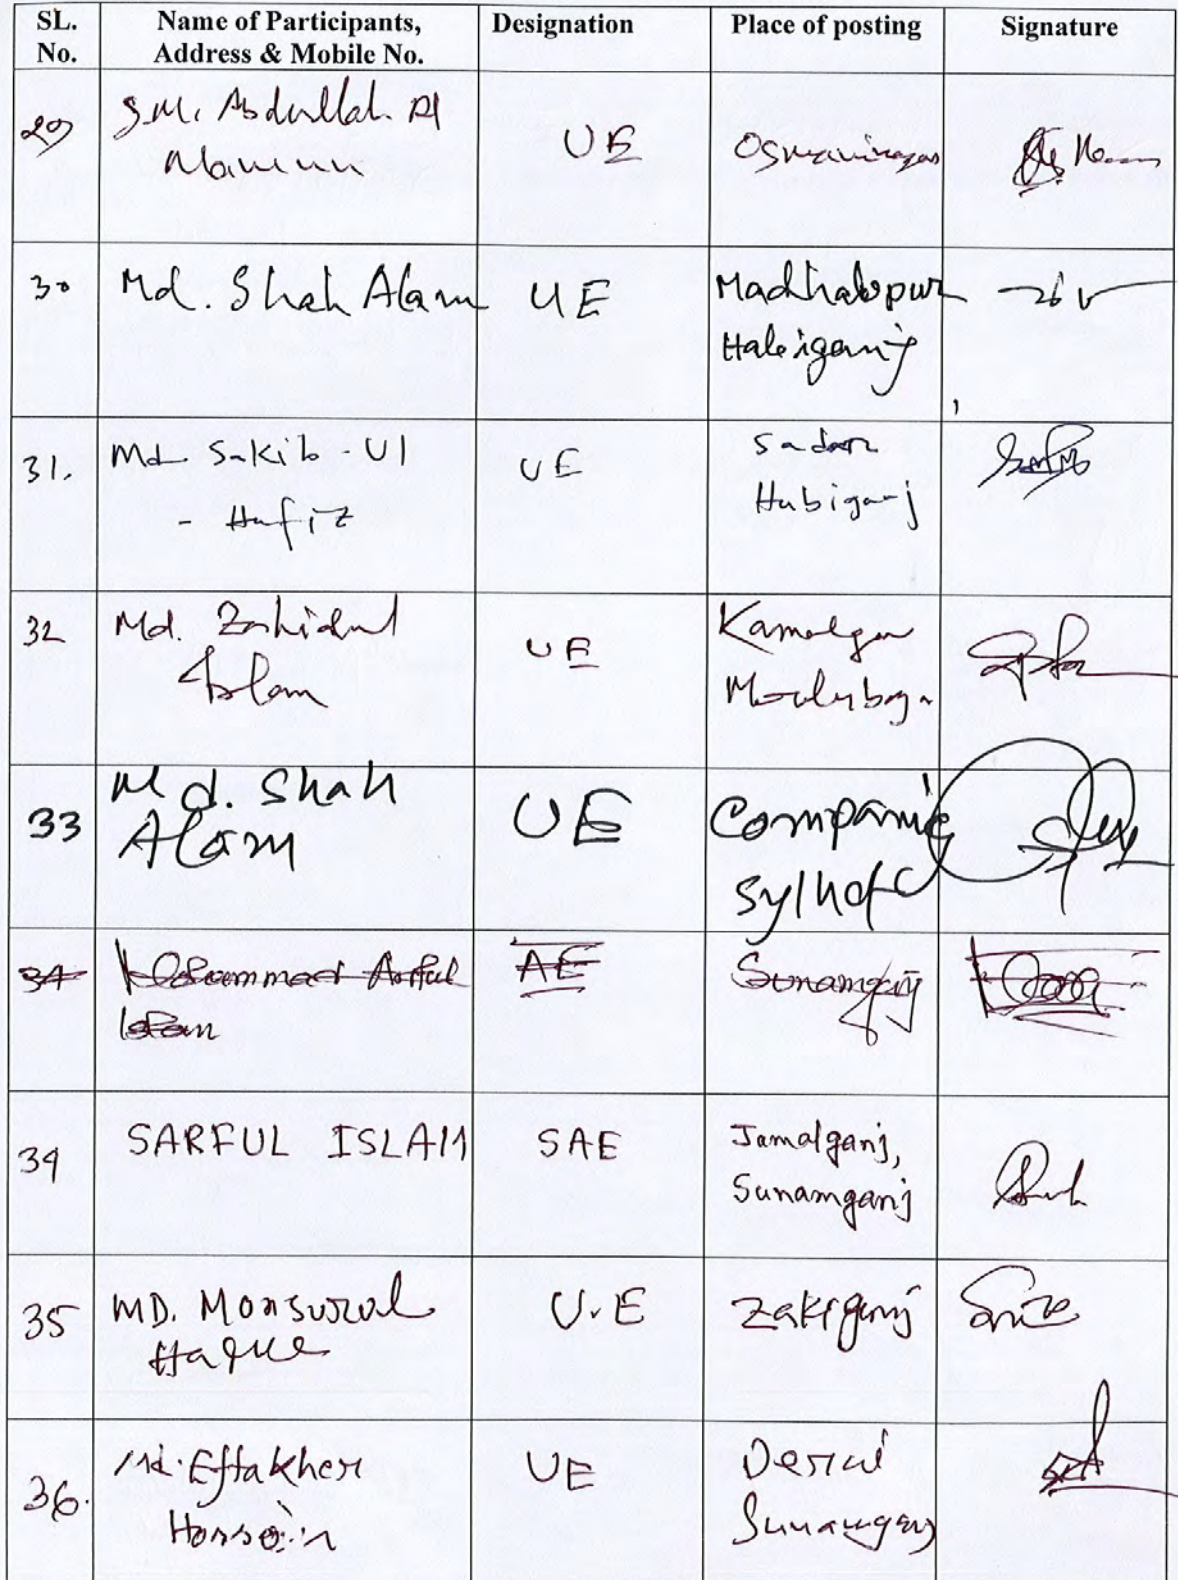 SL. No. Name of Participants, Address & Mobile No. Designation Place of posting Signature
29 S.M. Abdullah Al Mamun UE Osmaninagar
30 Md. Shah Alam UE Madhabpur Habiganj
31. Md. Sakib-Ul - Hafiz UE Sadar Habiganj
32 Md. Zahidul Islam UE
33 Md. Shah Alam UE Companig Sylhet
34 AE Sunamganj
34 SARFUL ISLAM SAE Jamalganj, Sunamganj
35 MD. Monsurul Haque U.E Zakiganj
36. Md. Eftakher Hossein UE Derai Sunamganj